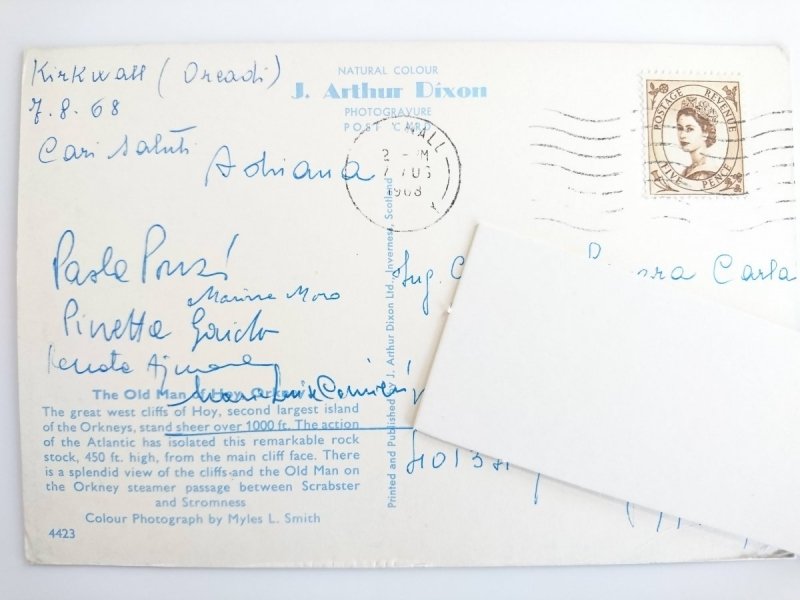 Kirkwall (Orcadi)
7.8.68
Cari saluti
Adriana
NATURAL COLOUR
J. Arthur Dixon
PHOTOGRAVURE
POST CARD
WALL
2 - M
7 AUG
1968
POSTAGE REVENUE
FIVE PENCE
Paola
Marina Moro
Pinetta
Renata
Maria Luisa
Ing.
Carla
Printed and Published by J. Arthur Dixon Ltd., Inverness, Scotland
The Old Man of Hoy, Orkney
The great west cliffs of Hoy, second largest island
of the Orkneys, stand sheer over 1000 ft. The action
of the Atlantic has isolated this remarkable rock
stock, 450 ft. high, from the main cliff face. There
is a splendid view of the cliffs and the Old Man on
the Orkney steamer passage between Scrabster
and Stromness
Colour Photograph by Myles L. Smith
4423